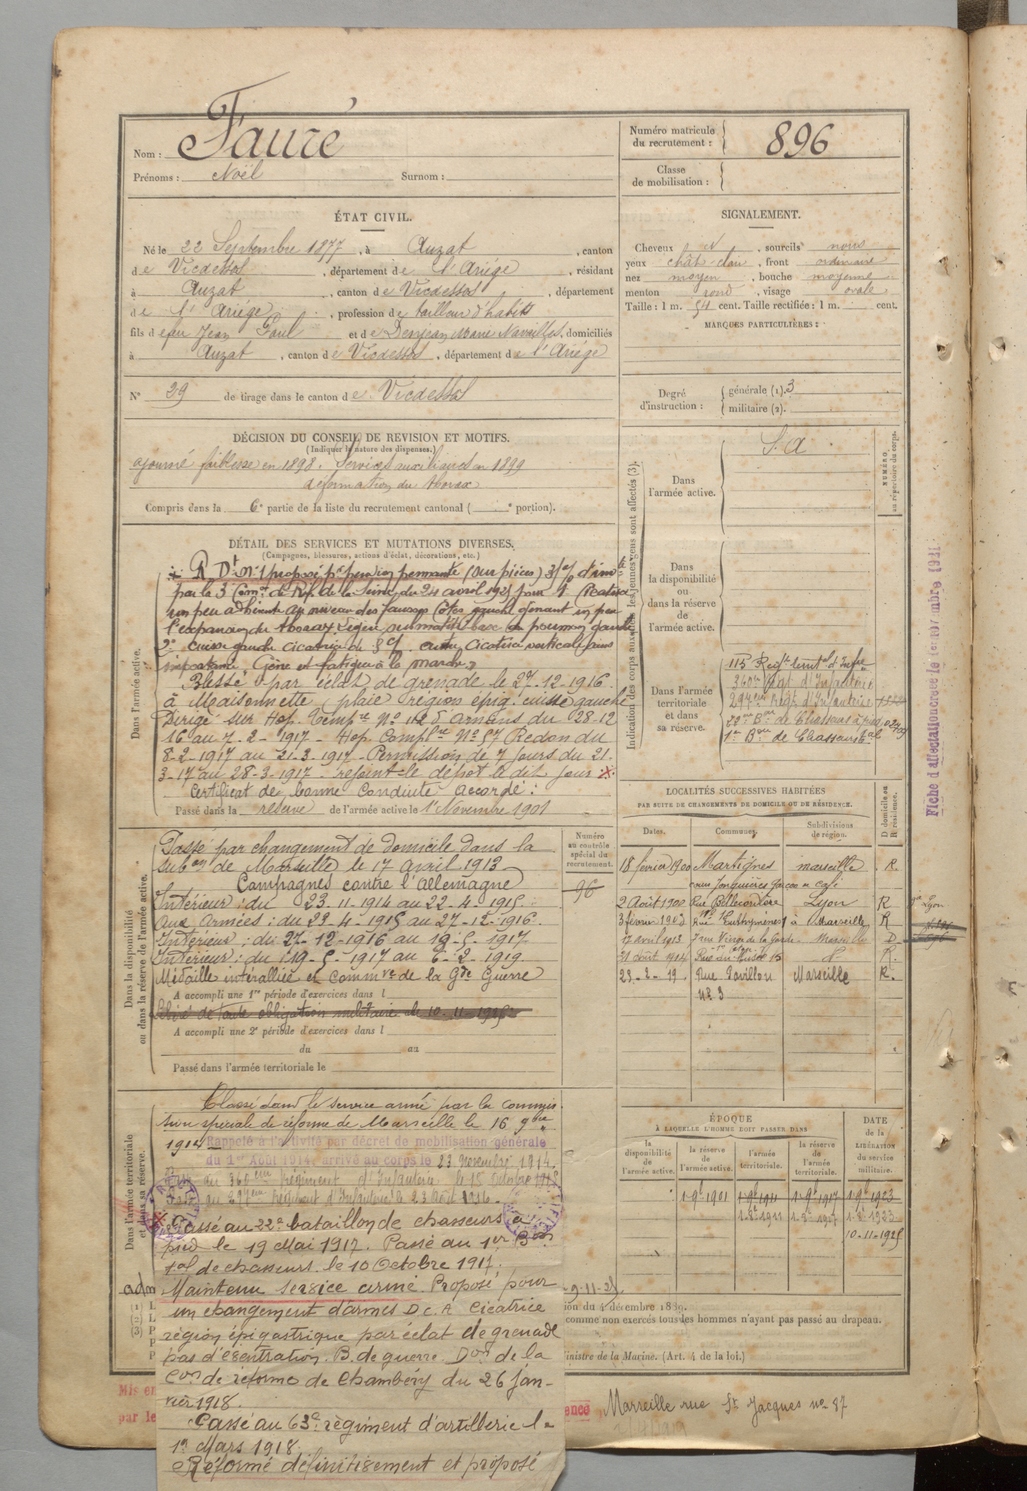 Nom : Fauré
Prénoms : Noël Surnom :
Numéro matricule du recrutement : 896
Classe de mobilisation :
ÉTAT CIVIL.
Né le 22 Septembre 1877, à Auzat, canton
de Vicdessos, département de l'Ariége, résidant
à Auzat, canton de Vicdessos, département
de l'Ariége, profession de tailleur d'habits
fils de feu Jean Paul et de Denjean Marie, domiciliés
à Auzat, canton de Vicdessos, département de l'Ariége
N° 29 de tirage dans le canton de Vicdessos
SIGNALEMENT.
Cheveux, sourcils noirs
yeux chât. clair, front ordinaire
nez moyen, bouche moyenne
menton rond, visage ovale
Taille : 1 m. 54 cent. Taille rectifiée : 1 m. cent.
MARQUES PARTICULIÈRES :
Degré d'instruction : générale (1). 3
militaire (2).
DÉCISION DU CONSEIL DE REVISION ET MOTIFS.
(Indiquer la nature des dispenses.)
ajourné faiblesse en 1898. Services auxiliaires en 1899
déformation du thorax
Compris dans la 6e partie de la liste du recrutement cantonal ( e portion).
DÉTAIL DES SERVICES ET MUTATIONS DIVERSES.
(Campagnes, blessures, actions d'éclat, décorations, etc.)
Dans l'armée active.
R D n° 1 proposé pr pension permante (sur pièces)
par la 3 Com de Réf. de la Seine du 24 avril 1925 pour 1
un peu adhérent au niveau des fausses côtes gauche gênant un peu
l'expansion du thorax. Léger submatité base du poumon gauche
2° cuisse gauche cicatrice de 5 c/ autre cicatrice verticale sans
importance. Gène et fatigue à la marche
Blessé par éclat de grenade le 27-12-1916
à Maisonnette (plaie région épig. cuisse gauche
Dirigé sur Hop. Temp re N° 112 d'Amiens du 28-12
16 au 7-2-1917 - Hop. Compl re N° 57 Redon du
8-2-1917 au 21-3-1917. Permission de 7 jours du 21
3-17 au 28-3-1917 - rejoint le dépôt le dit jour
Certificat de bonne conduite accordé :
Passé dans la réserve de l'armée active le 1er Novembre 1901
Indication des corps auxquels les jeunes gens sont affectés (3).
NUMÉRO au répertoire du corps.
Dans l'armée active. S. A
Dans la disponibilité ou dans la réserve de l'armée active.
Dans l'armée territoriale et dans sa réserve.
115 Regt territal d'Infie
360me Regt d'Infanterie
297eme Regt d'Infanterie
22me Bon de Chasseurs à pied
1er Bon de Chasseurs
LOCALITÉS SUCCESSIVES HABITÉES
PAR SUITE DE CHANGEMENTS DE DOMICILE OU DE RÉSIDENCE.
Dates. Communes. Subdivisions de région. D domicile ou R résidence.
18 février 1900 Martigues marseille R.
cours Jonquières Garçon de café
2 Août 1900 Rue Bellecordière Lyon R
3 février 1903 à Marseille R
17 avril 1913 Marseille D
31 août 1914 Rue du Musée 15 R.
23-2-19 Rue Pavillon Marseille R.
N° 3
Fiche d'affectation créée le 1er septembre 1921
Dans la disponibilité ou dans la réserve de l'armée active.
Numéro au contrôle spécial du recrutement.
96
Passé par changement de domicile dans la
subon de Marseille le 17 avril 1913
Campagnes contre l'allemagne
Intérieur : du 23-11-1914 au 22-4-1915
aux Armées : du 22-4-1915 au 27-12-1916.
Intérieur : du 27-12-1916 au 19-5-1917
Intérieur : du 19-5-1917 au 6-2-1919
Médaille interalliée et Commve de la Gde Guerre
A accompli une 1re période d'exercices dans l
Libéré de toute obligation militaire le 10-11-1925
A accompli une 2e période d'exercices dans l
du au
Passé dans l'armée territoriale le
Dans l'armée territoriale et dans sa réserve.
Classé dans le service armé par la commis-
sion spéciale de réforme de Marseille le 16 9bre
1914 Rappelé à l'activité par décret de mobilisation générale
du 1er Août 1914. arrivé au corps le 23 novembre 1914.
Passé au 360eme régiment d'Infanterie le 15 Octobre 1915
Passé au 297eme régiment d'Infanterie le 23 Août 1916.
Passé au 22e bataillon de chasseurs à
pied le 19 Mai 1917. Passé au 1er Bon
de chasseurs le 10 Octobre 1917.
Maintenu service armé. Proposé pour
un changement d'armes D.C.A. Cicatrice
région épigastrique par éclat de grenade
pas d'éventration. B. de guerre. Don de la
Con de réforme de Chambéry du 26 jan-
vier 1918.
Passé au 63e régiment d'artillerie le
1er Mars 1918.
Réformé définitivement et proposé
ÉPOQUE
À LAQUELLE L'HOMME DOIT PASSER DANS
la disponibilité de l'armée active. la réserve de l'armée active. l'armée territoriale. la réserve de l'armée territoriale.
DATE de la LIBÉRATION du service militaire.
1-9e 1901 1-9e 1911 1-9e 1917 1-9e 1923
1-8e 1911 1-8e 1917 1-8e 1923
10-11-1925
9-11-25
du 4 décembre 1889.
comme non exercés tous les hommes n'ayant pas passé au drapeau.
Ministre de la Marine. (Art. 4 de la loi.)
Mis en
par le
Marseille rue St Jacques n° 87